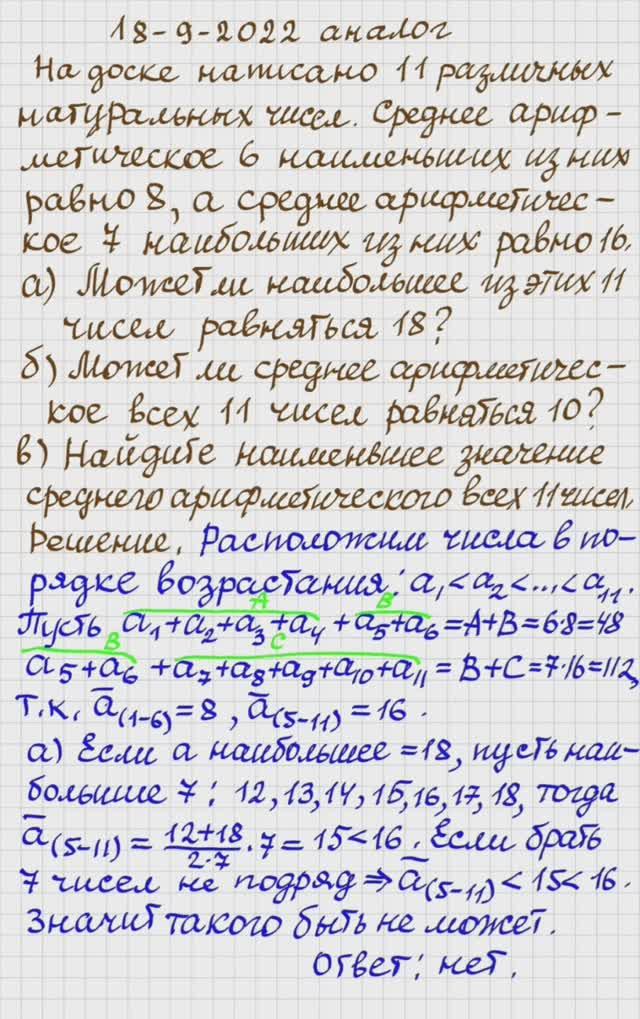 18-9-2022 аналог
На доске написано 11 различных
натуральных чисел. Среднее ариф-
метическое 6 наименьших из них
равно 8, а среднее арифметичес-
кое 7 наибольших из них равно 16.
а) Может ли наибольшее из этих 11
чисел равняться 18?
б) Может ли среднее арифметичес-
кое всех 11 чисел равняться 10?
в) Найдите наименьшее значение
среднего арифметического всех 11 чисел.
Решение. Расположим числа в по-
рядке возрастания: a₁<a₂<...<a₁₁.
A B
Пусть a₁+a₂+a₃+a₄+a₅+a₆=A+B=6·8=48
B C
a₅+a₆+a₇+a₈+a₉+a₁₀+a₁₁=B+C=7·16=112,
т.к. a̅(1-6)=8, a̅(5-11)=16.
а) Если а наибольшее =18, пусть наи-
большие 7: 12,13,14,15,16,17,18, тогда
a̅(5-11)=(12+18)/(2·7)·7=15<16. Если брать
7 чисел не подряд ⇒ a̅(5-11)<15<16.
Значит такого быть не может.
Ответ: нет.